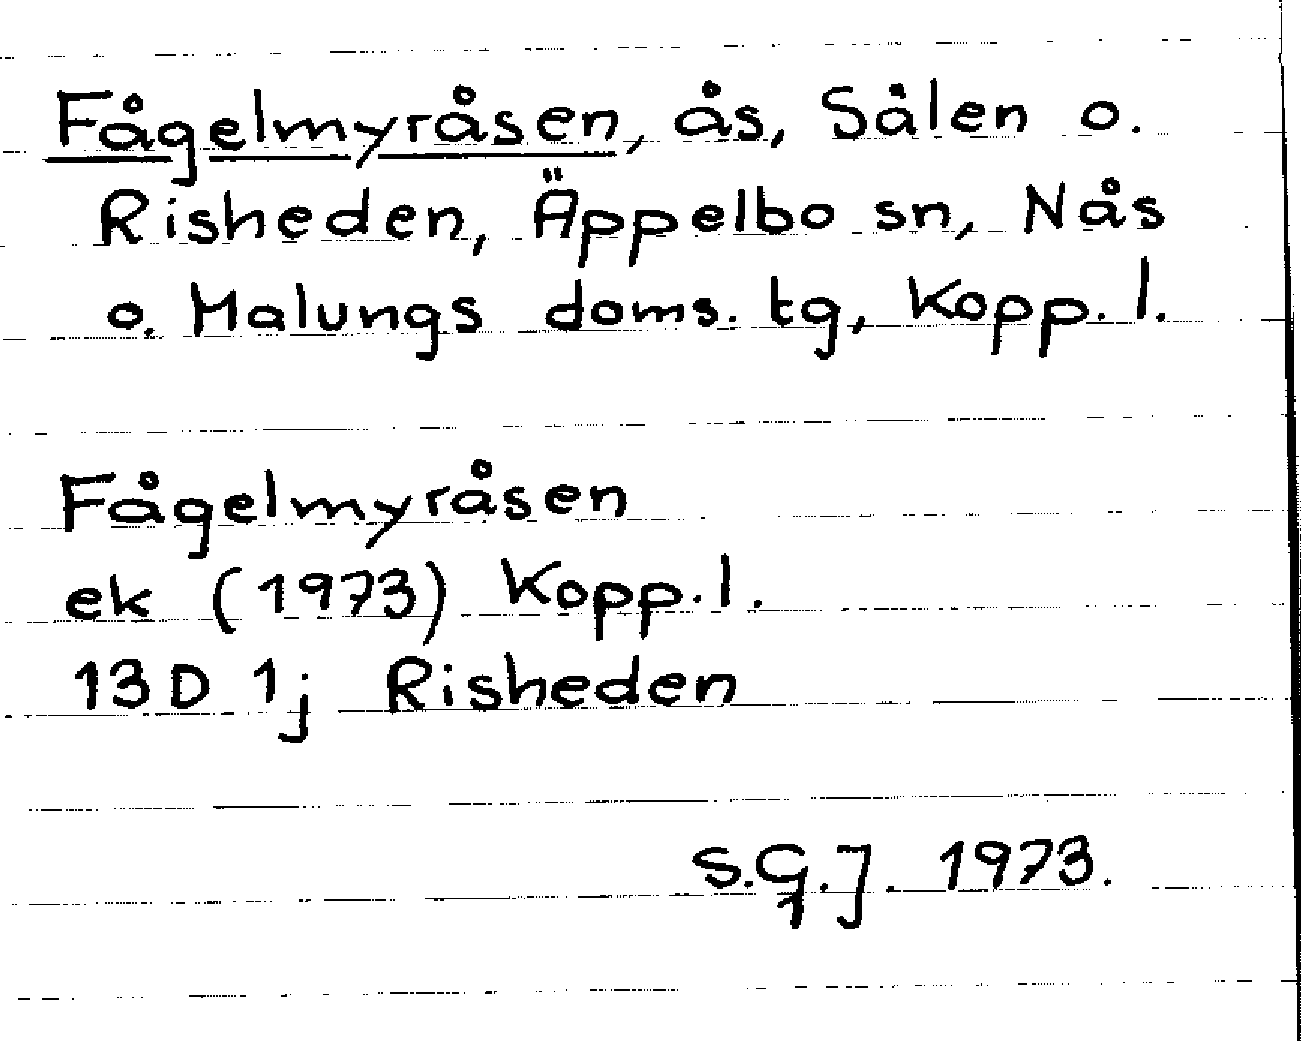 Fågelmyråsen, ås, Sålen o.
Risheden, Äppelbo sn, Nås
o. Malungs doms. tg, Kopp. l.
Fågelmyråsen
ek (1973) Kopp. l.
13D 1j Risheden
S.G.J. 1973.